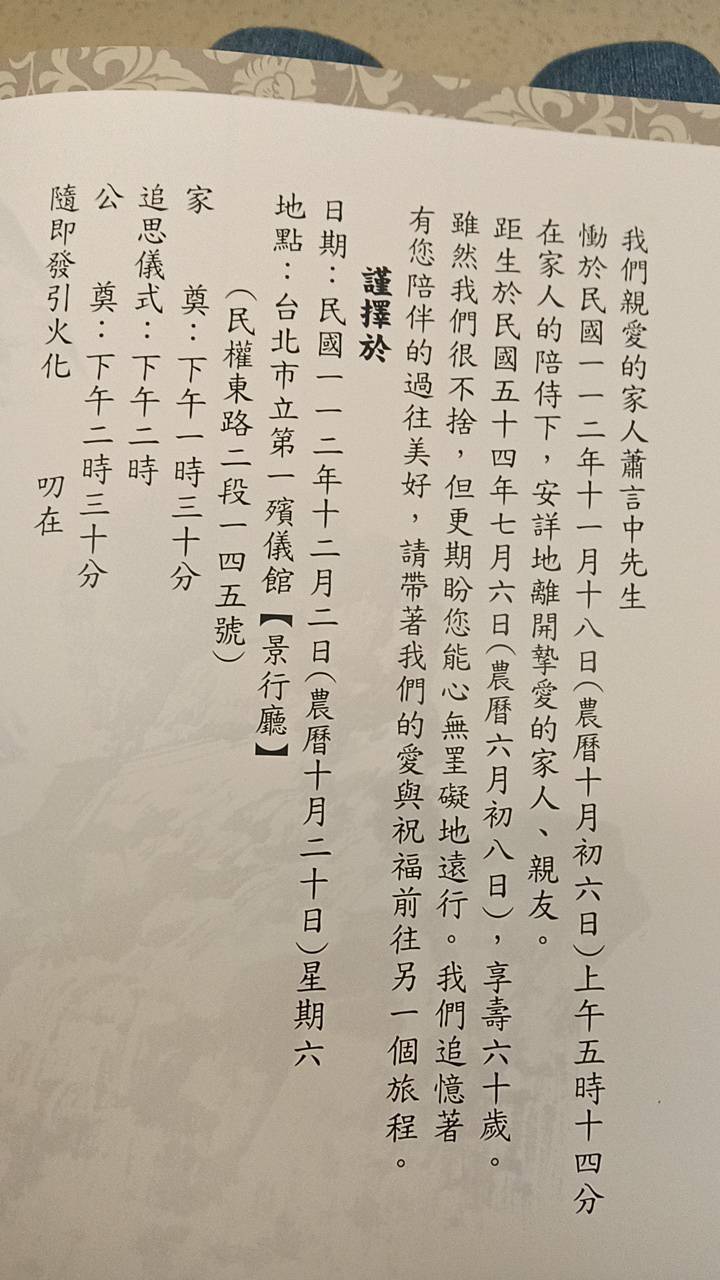 我們親愛的家人蕭言中先生
慟於民國一一二年十一月十八日(農曆十月初六日)上午五時十四分
在家人的陪侍下，安詳地離開摯愛的家人、親友。
距生於民國五十四年七月六日(農曆六月初八日)，享壽六十歲。
雖然我們很不捨，但更期盼您能心無罣礙地遠行。我們追憶著
有您陪伴的過往美好，請帶著我們的愛與祝福前往另一個旅程。
謹擇於
日期：民國一一二年十二月二日(農曆十月二十日)星期六
地點：台北市立第一殯儀館【景行廳】
(民權東路二段一四五號)
家　　奠：下午一時三十分
追思儀式：下午二時
公　　奠：下午二時三十分
隨即發引火化
叨在